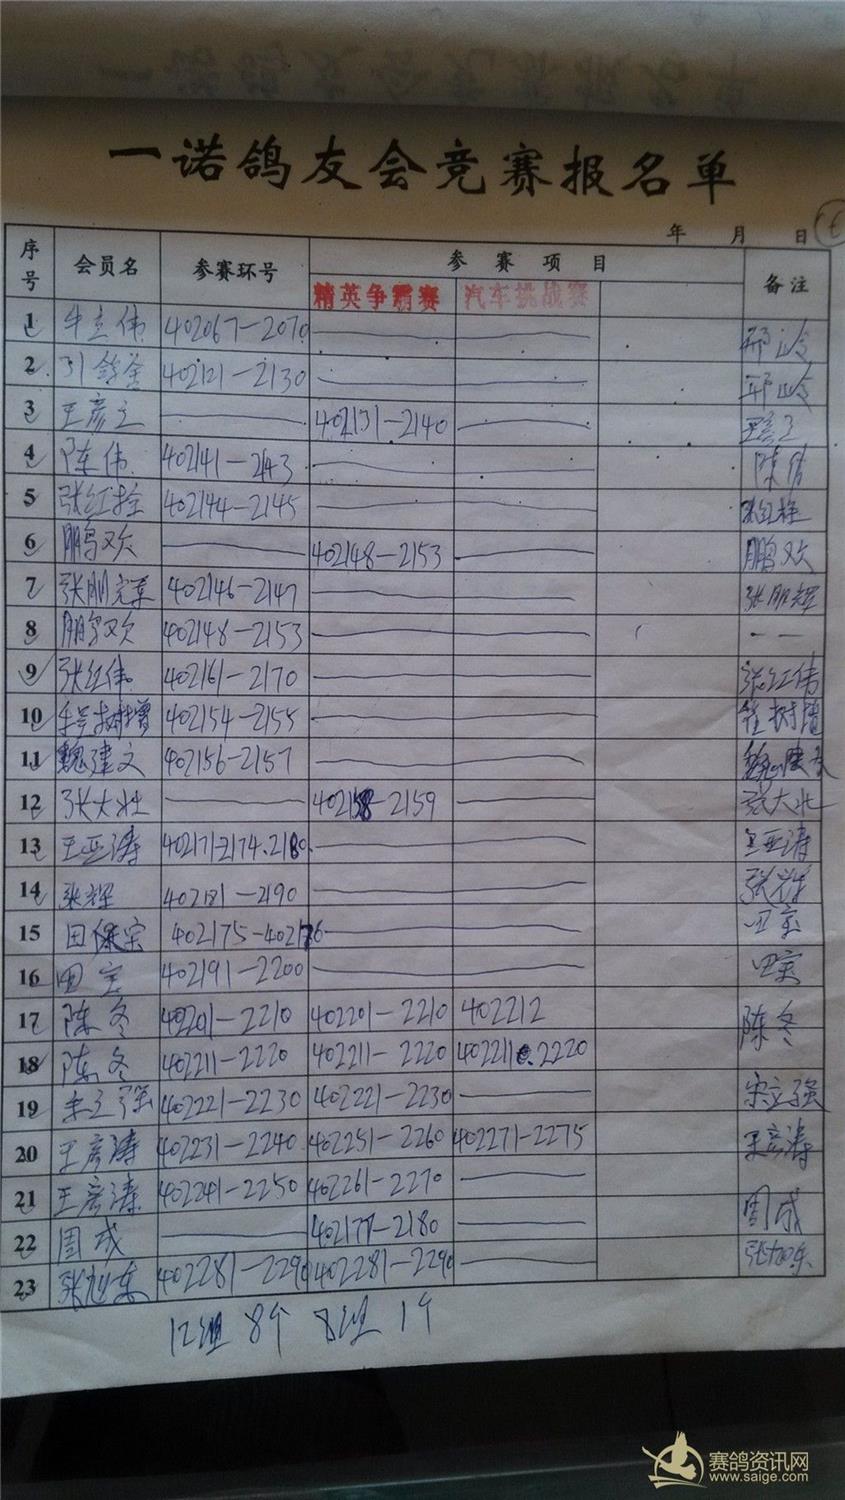 一诺鸽友会竞赛报名单
年 月 日
序号 会员名 参赛环号 参赛项目 备注
精英争霸赛 汽车挑战赛
1 牛立伟 402067-2070
2 402121-2130
3 王彦立 402131-2140 王彦立
4 陈伟 402141-2143 陈伟
5 张红拴 402144-2145 张红拴
6 鹏欢 402148-2153 鹏欢
7 张朋辉 402146-2147 张朋辉
8 鹏欢 402148-2153
9 张红伟 402161-2170 张红伟
10 树增 402154-2155 树增
11 魏建文 402156-2157 魏建文
12 张大壮 402158-2159 张大壮
13 王亚涛 402171-2174.2180 王亚涛
14 张辉 402181-2190 张辉
15 田保宝 402175-402176 田宝
16 田宝 402191-2200 田宝
17 陈冬 402201-2210 402201-2210 402212 陈冬
18 陈冬 402211-2220 402211-2220 402211 2220
19 宋立强 402221-2230 402221-2230 宋立强
20 王彦涛 402231-2240 402251-2260 402271-2275 王彦涛
21 王彦涛 402241-2250 402261-2270
22 周成 402177-2180 周成
23 张旭东 402281-2290 402281-2290 张旭东
12组 8个 8组 1个
赛鸽资讯网
www.saige.com